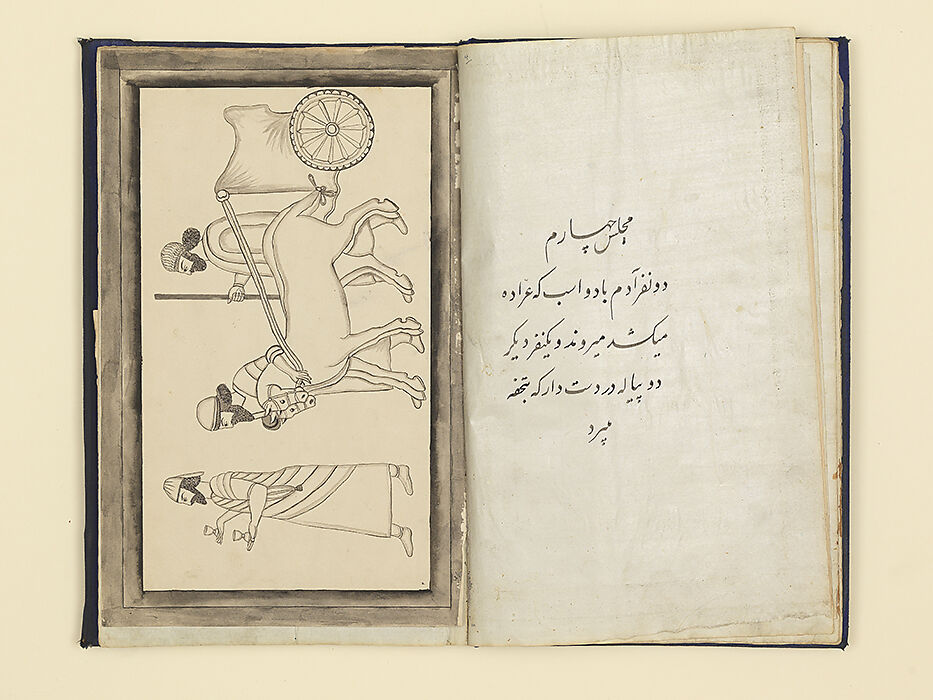 مجلس چهارم
دو نفر آدم با دو اسب که عراده
میکشد میروند و یکنفر دیکر
دو پیاله در دست دارد که بتحفه
میبرد